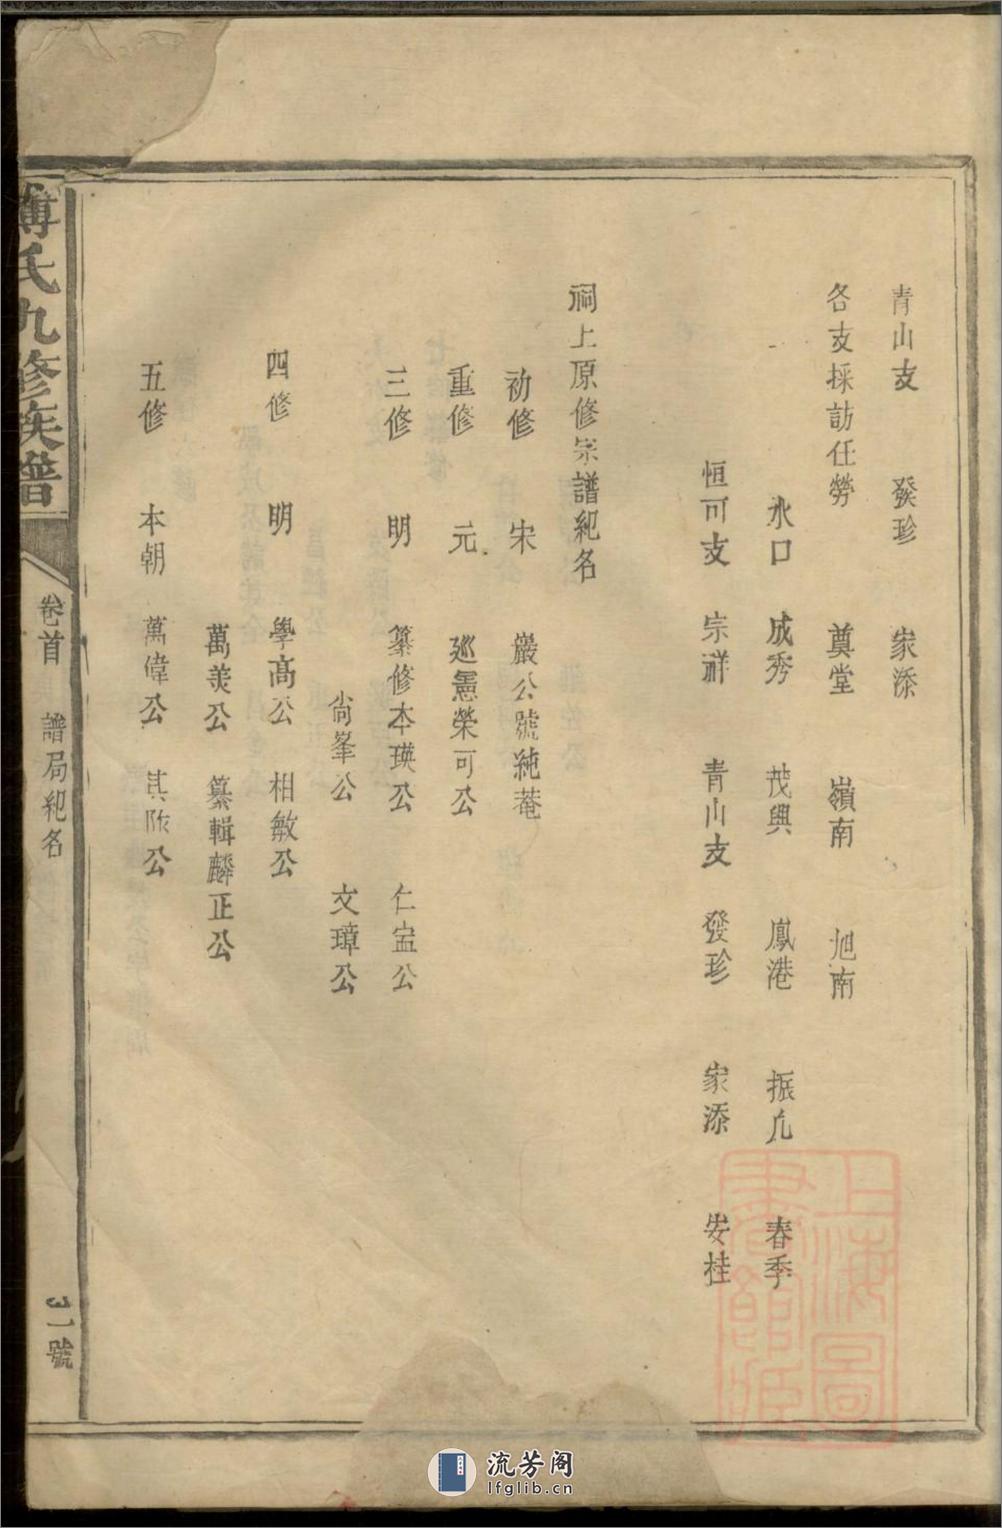 青山支 發珍 家添
各支採訪任勞 奠堂 嶺南 旭南
水口 成秀 茂興 鳳港 振凡 春季
恒可支 宗祥 青山支 發珍 家添 安桂
祠上原修宗譜紀名
初修 宋 嚴公號純菴
重修 元 巡憲榮可公
三修 明 纂修本瑛公 仁宝公
尙峯公 文璋公
四修 明 學高公 相敏公
萬美公 纂輯麟正公
五修 本朝 萬偉公 其阼公
傅氏九修族譜
卷首 譜局紀名
號
上海圖書館藏
流芳阁
lfglib.cn